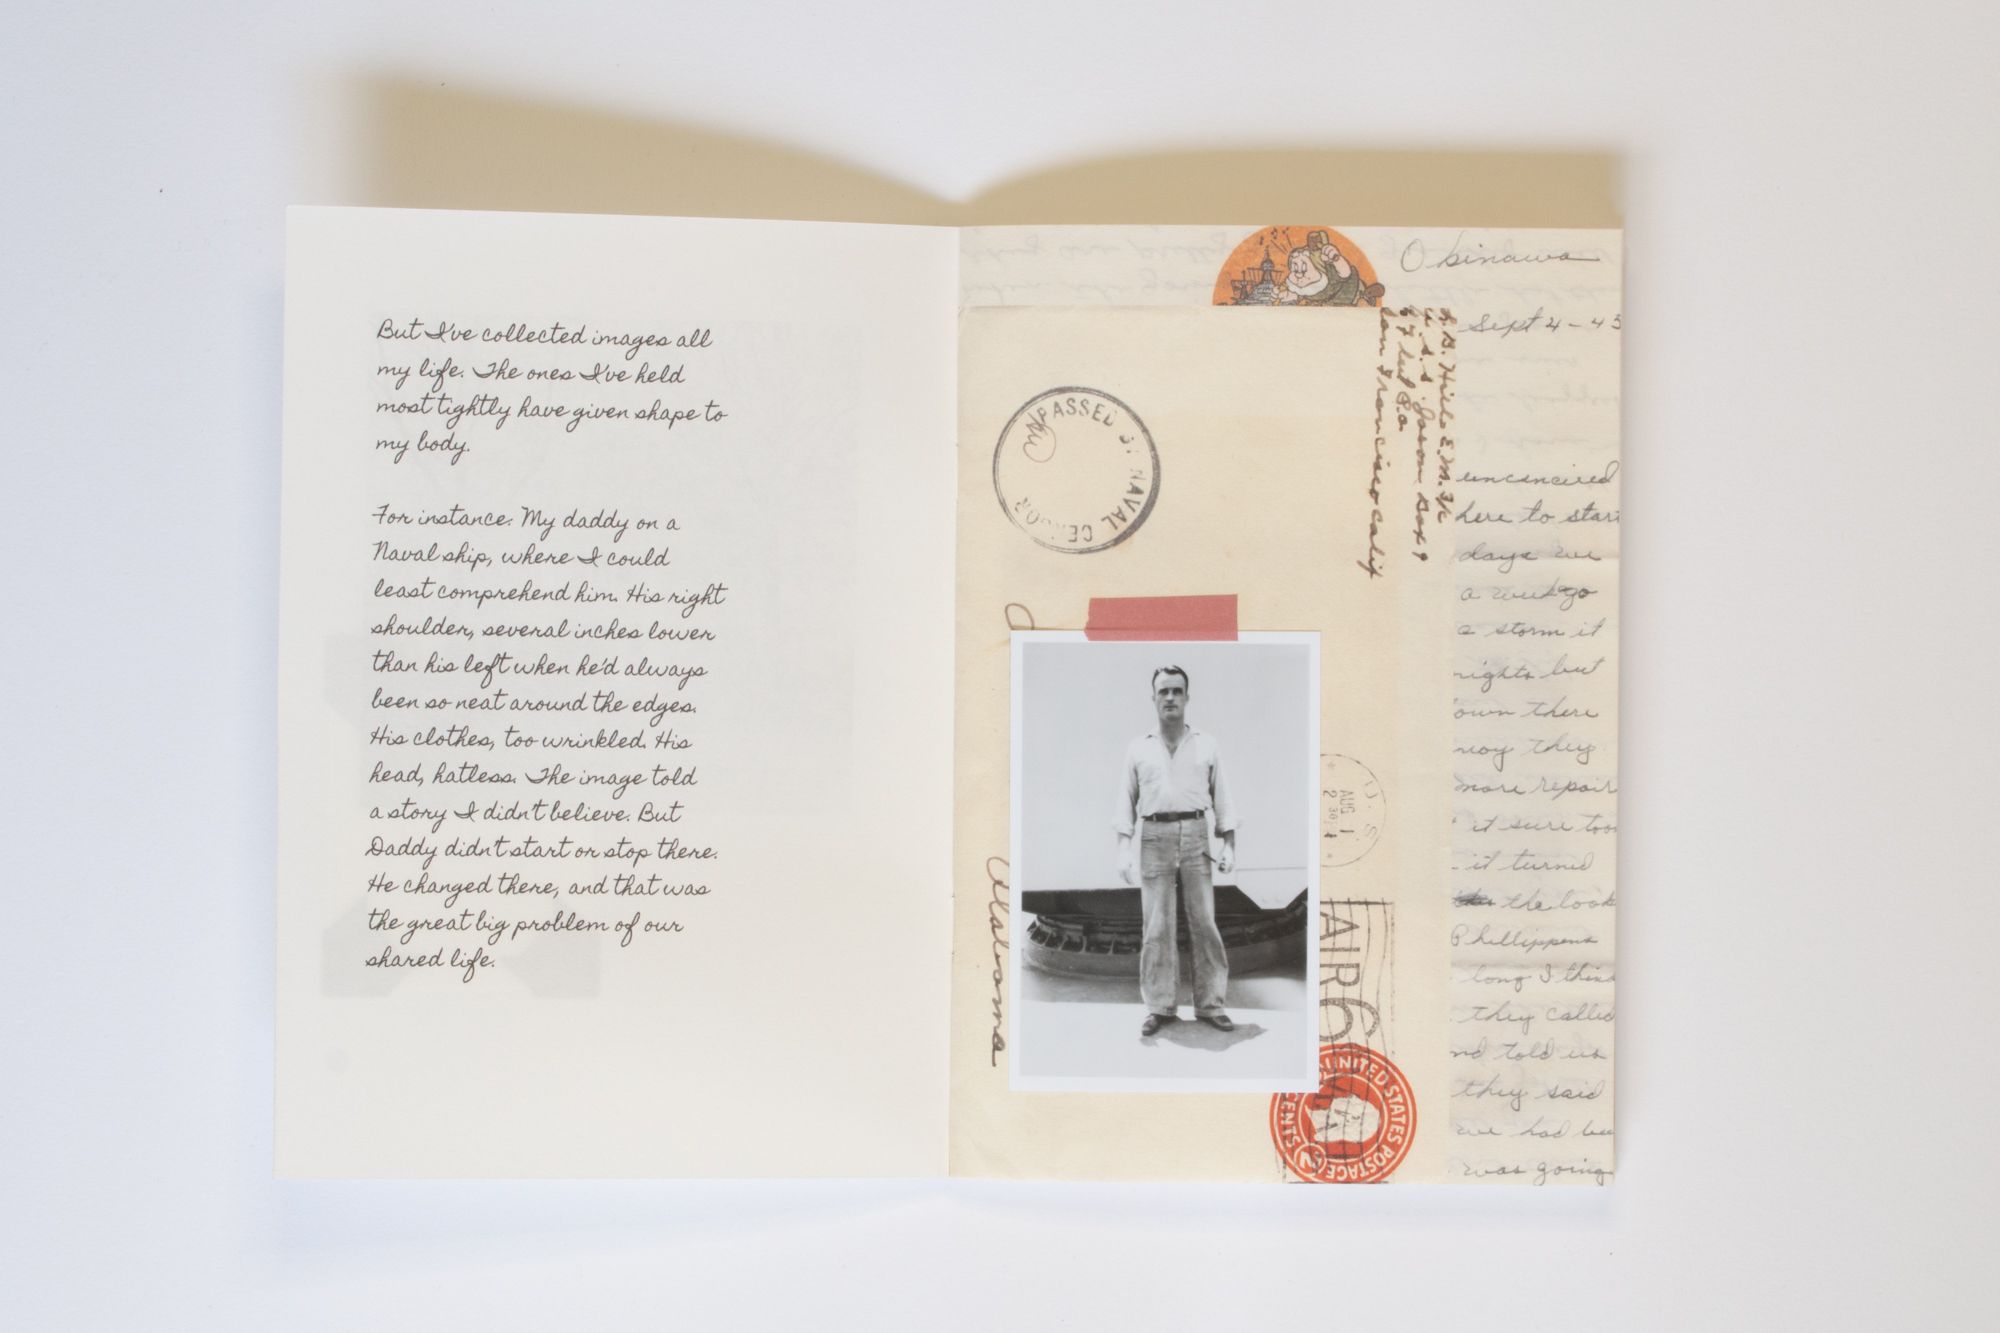 But I've collected images all
my life. The ones I've held
most tightly have given shape to
my body.
For instance: My daddy on a
Naval ship, where I could
least comprehend him. His right
shoulder, several inches lower
than his left when he'd always
been so neat around the edges.
His clothes, too wrinkled. His
head, hatless. The image told
a story I didn't believe. But
Daddy didn't start or stop there.
He changed there, and that was
the great big problem of our
shared life.
Okinawa
Sept 4-45
PASSED BY NAVAL CENSOR
U.S.S. Jason Box 9
San Francisco Calif
Alabama
U.S.
AUG 1
2 30
AIR
UNITED STATES POSTAGE
CENTS
here to start
days we
a week go
a storm it
rights but
own there
they
more repair
it sure too
it turned
the look
Phillippens
long I think
they called
nd told us
they said
we had bee
was going